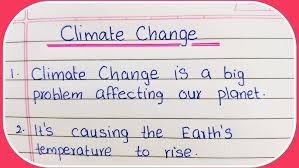 Climate Change
1. Climate Change is a big
problem affecting our planet.
2. It's causing the Earth's
temperature to rise.